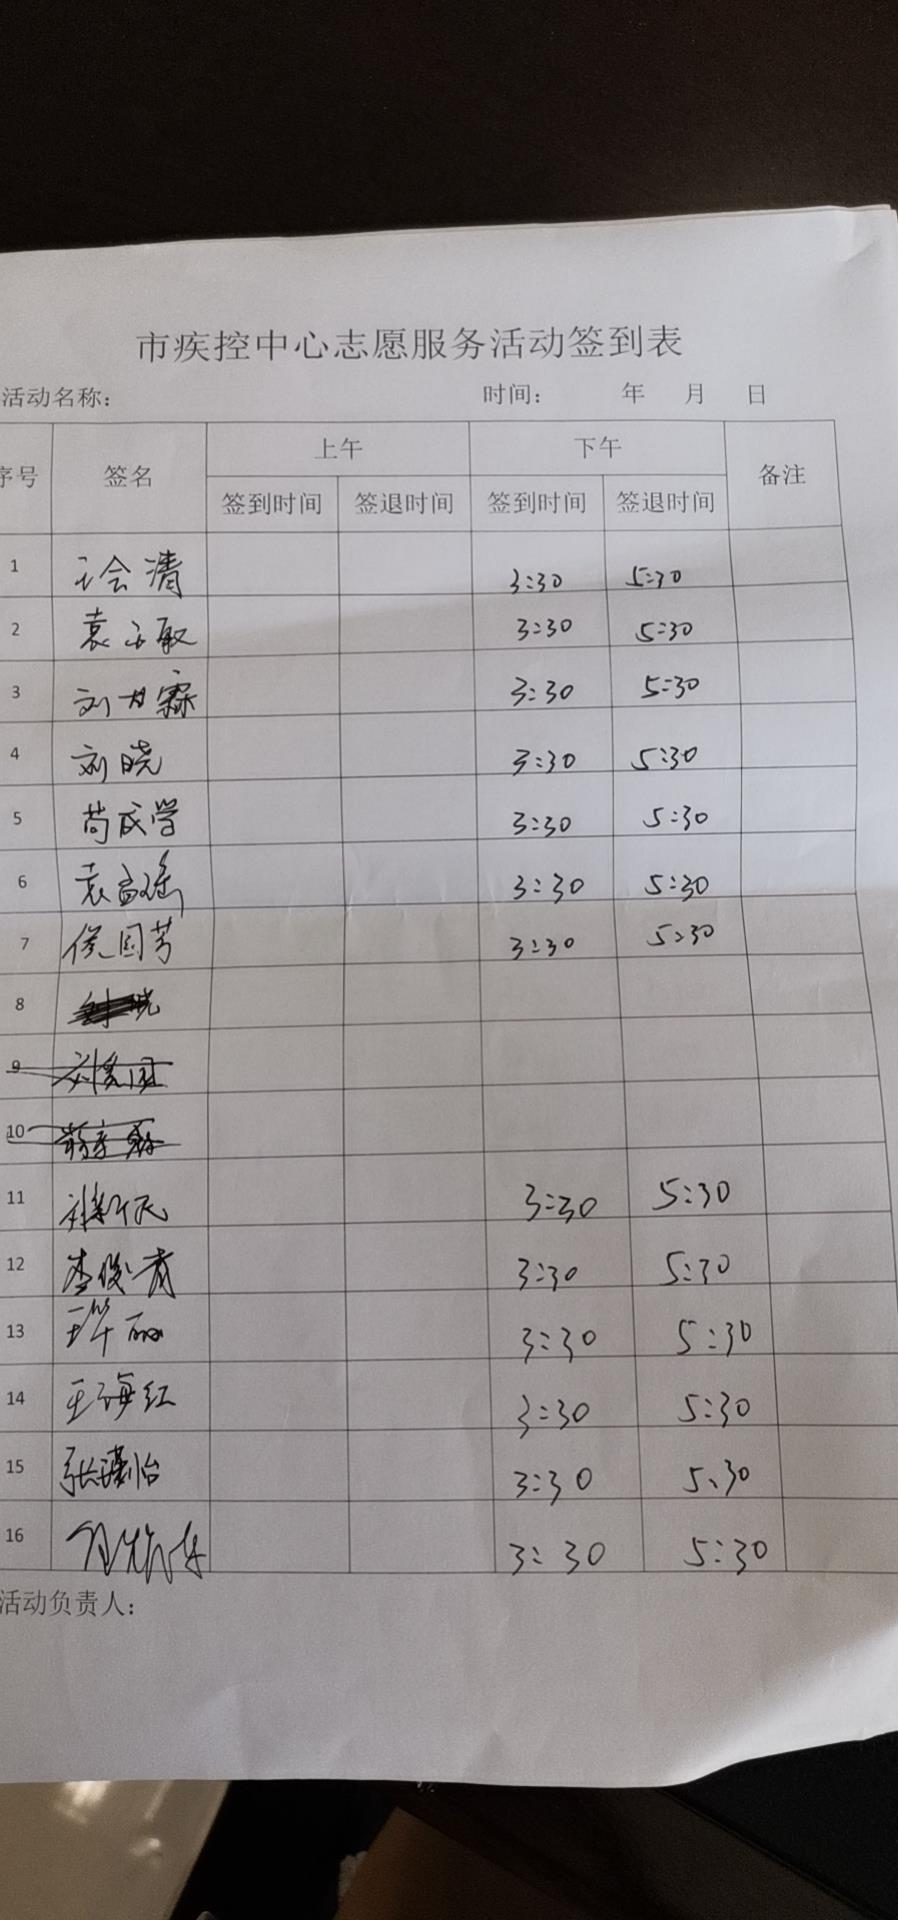 市疾控中心志愿服务活动签到表
活动名称： 时间： 年 月 日
序号 签名 上午 下午 备注
签到时间 签退时间 签到时间 签退时间
1 王会清 3:30 5:30
2 袁 敏 3:30 5:30
3 刘 霖 3:30 5:30
4 刘晓 3:30 5:30
5 苟成学 3:30 5:30
6 袁 瑶 3:30 5:30
7 侯国芳 3:30 5:30
8
9
10
11 3:30 5:30
12 李俊青 3:30 5:30
13 王华丽 3:30 5:30
14 王海红 3:30 5:30
15 张瑾怡 3:30 5:30
16 3:30 5:30
活动负责人：